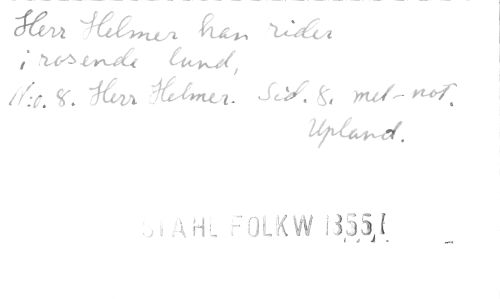 Herr Helmer han rider
i rosende lund,
N:o. 8. Herr Helmer. Sid. 8. mel-not.
Upland.
STAHL FOLKW 1355,1